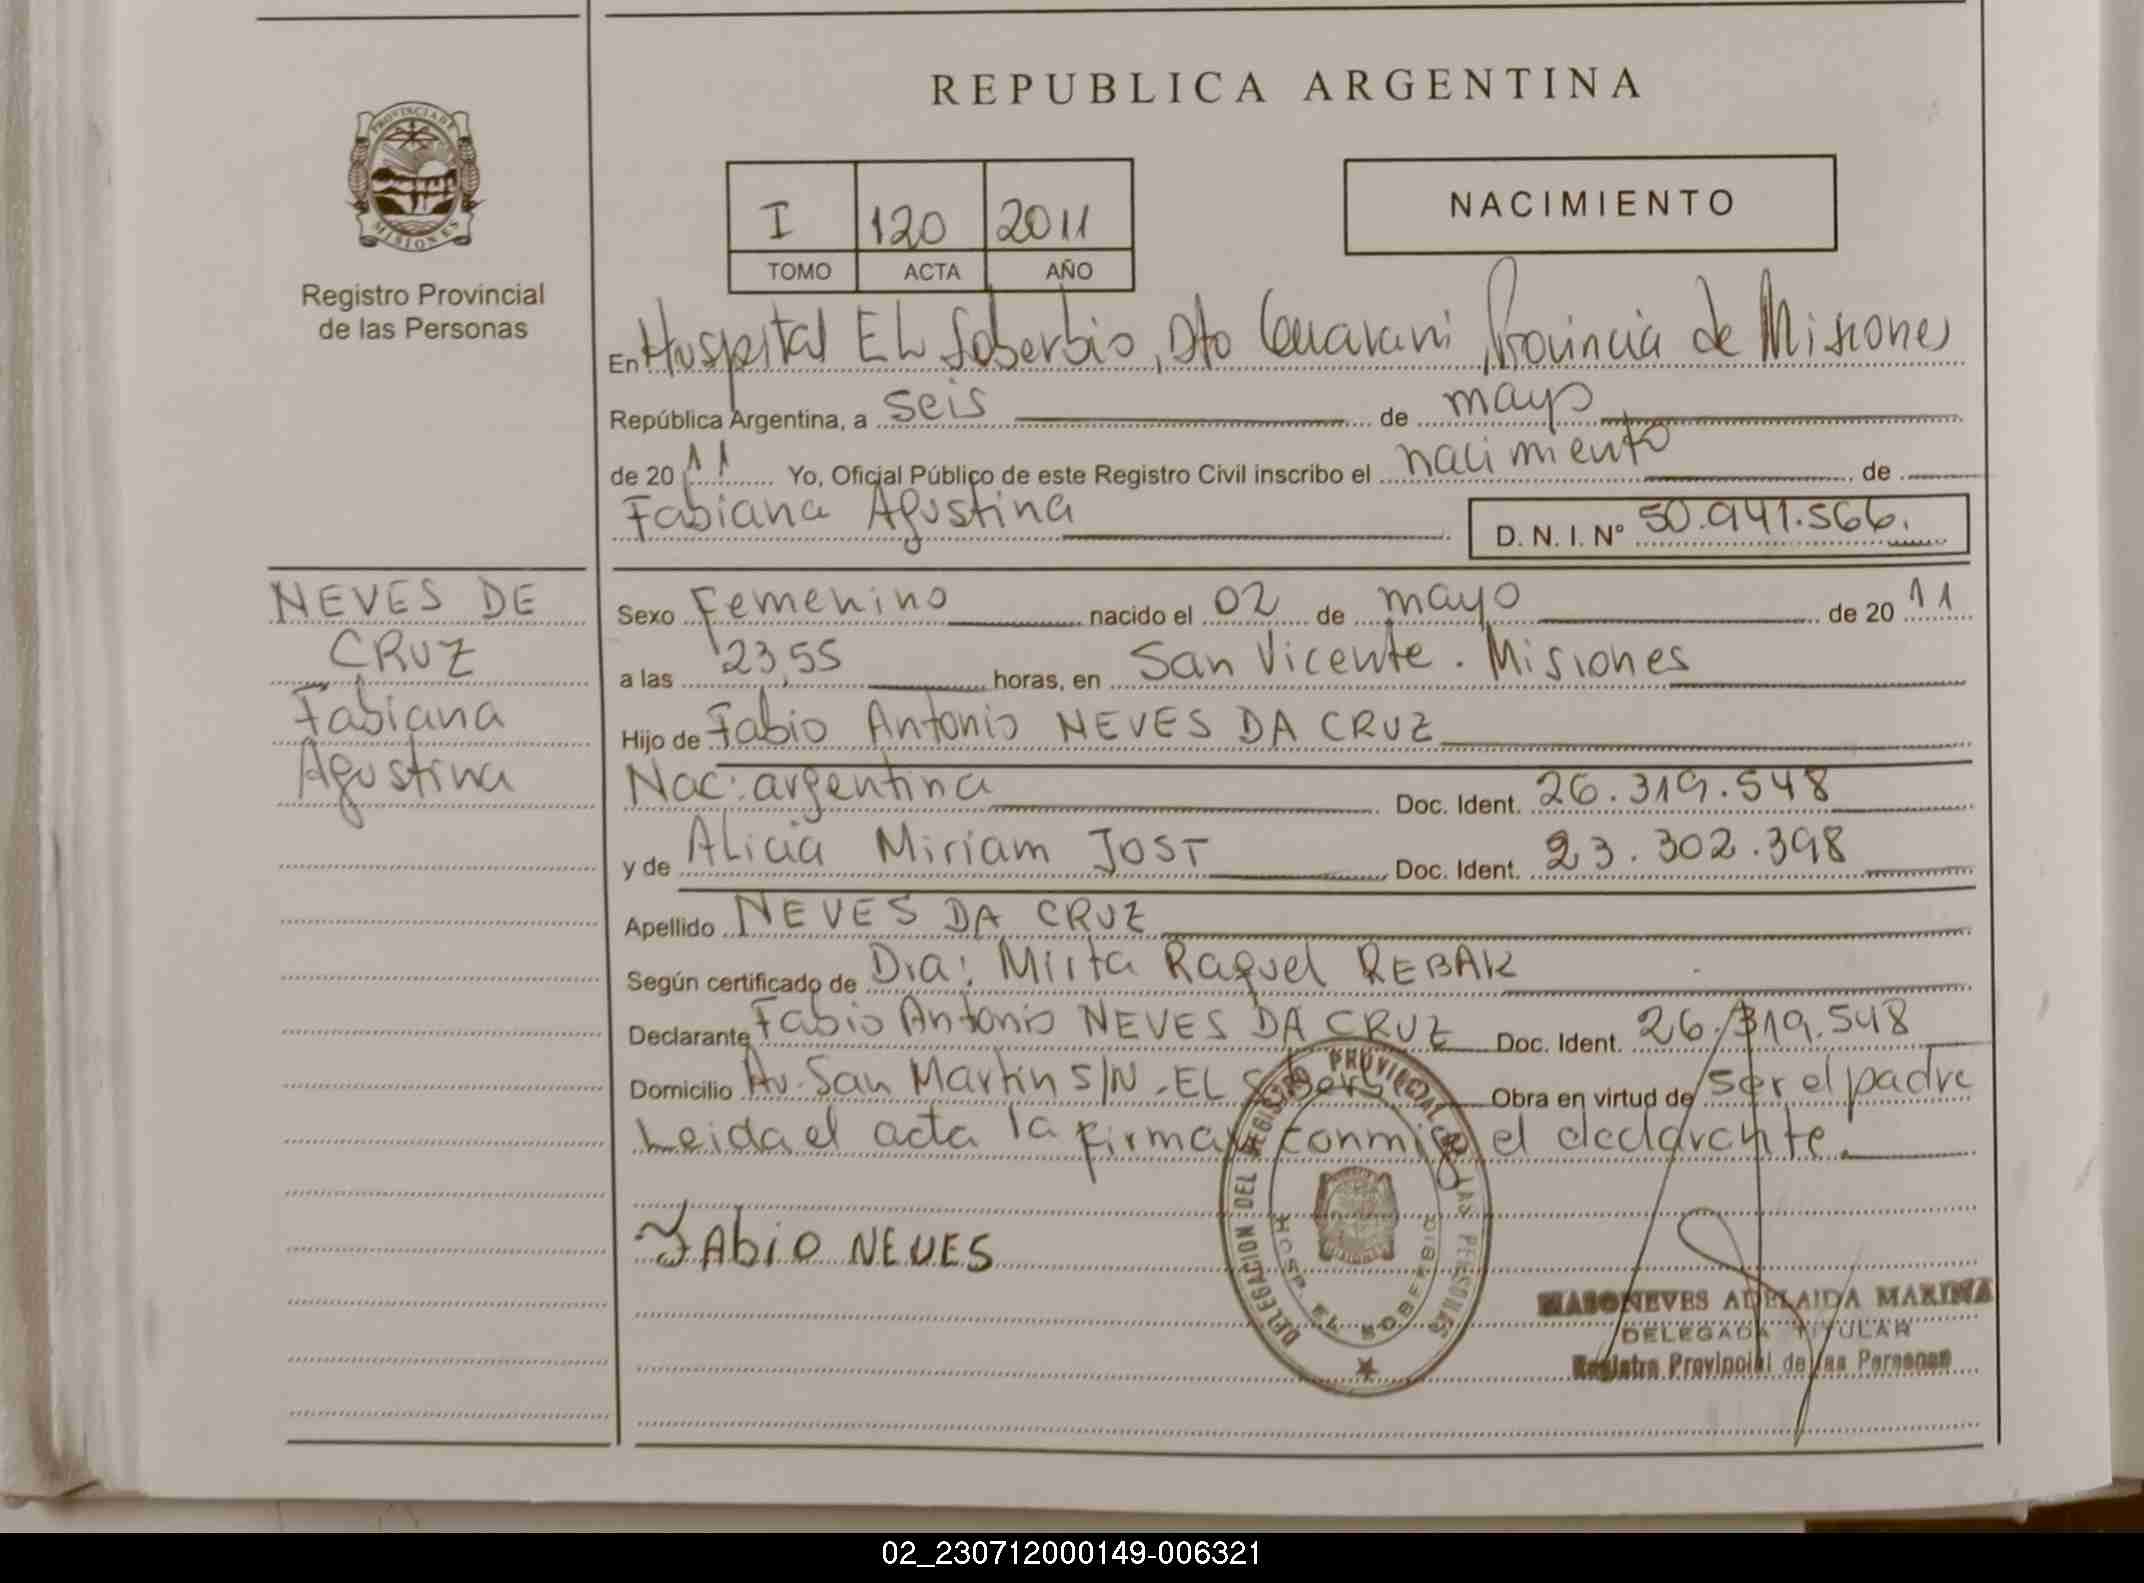 REPUBLICA ARGENTINA
PROVINCIA DE
MISIONES
Registro Provincial
de las Personas
I 120 2011
TOMO ACTA AÑO
NACIMIENTO
En Hospital EL Soberbio, Dto Guarani, Provincia de Misiones
República Argentina, a seis de mayo
de 2011 Yo, Oficial Público de este Registro Civil inscribo el nacimiento de
Fabiana Agustina D. N. I. Nº 50.941.566.
NEVES DE
CRUZ
Fabiana
Agustina
Sexo Femenino nacido el 02 de mayo de 2011
a las 23,55 horas, en San Vicente. Misiones
Hijo de Fabio Antonio NEVES DA CRUZ
Nac: argentina Doc. Ident. 26.319.548
y de Alicia Miriam JOST Doc. Ident. 23.302.398
Apellido NEVES DA CRUZ
Según certificado de Dra: Mirta Raquel REBAK
Declarante Fabio Antonio NEVES DA CRUZ Doc. Ident. 26.319.548
Domicilio Av. San Martin S/N - EL Soberbio Obra en virtud de ser el padre
Leida el acta la firman conmigo el declarante.
FAbiO NEVES
DELEGACION DEL REGISTRO PROVINCIAL DE LAS PERSONAS
HOSP. EL SOBERBIO
MASONEVES ADELAIDA MARINA
DELEGADA TITULAR
Registro Provincial de las Personas
02_230712000149-006321